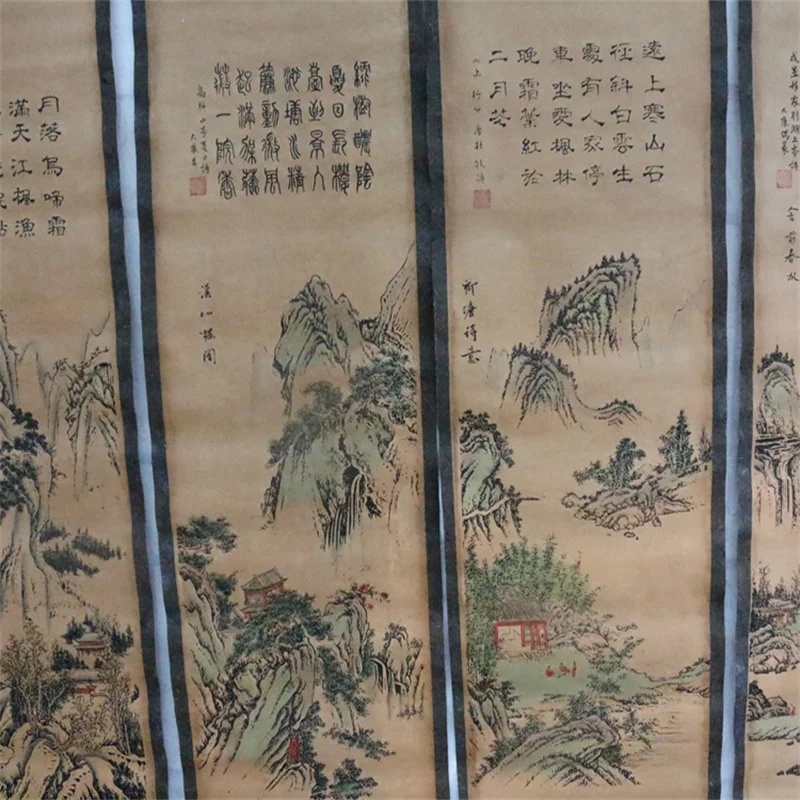 遠上寒山石
徑斜白雲生
處有人家停
車坐愛楓林
晚霜葉紅於
二月花
唐杜牧詩
柳塘詩意
綠樹濃陰
夏日長樓
臺倒景入
池塘水精
簾動微風
起滿架薔
薇一院香
高駢山亭夏日詩
溪山樓閣
月落烏啼霜
滿天江楓漁